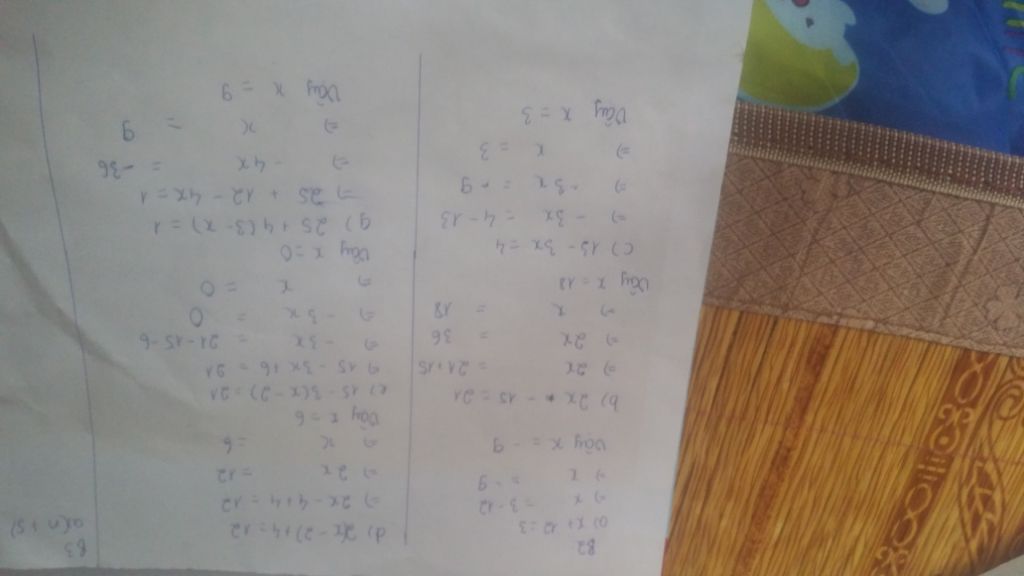 B2
a) x + 12 = 3
⇒ x = 3 - 12
⇒ x = -9
Vậy x = -9
b) 2x - 15 = 21
⇒ 2x = 21 + 15
⇒ 2x = 36
⇒ x = 18
Vậy x = 18
c) 13 - 3x = 4
⇒ - 3x = 4 - 13
⇒ -3x = -9
⇒ x = 3
Vậy x = 3
d) 2(x - 2) + 4 = 12
⇒ 2x - 4 + 4 = 12
⇒ 2x = 12
⇒ x = 6
Vậy x = 6
e) 15 - 3(x - 2) = 21
⇒ 15 - 3x + 6 = 21
⇒ - 3x = 21 - 15 - 6
⇒ - 3x = 0
⇒ x = 0
Vậy x = 0
g) 25 + 4(3 - x) = 1
⇒ 25 + 12 - 4x = 1
⇒ - 4x = -36
⇒ x = 9
Vậy x = 9
B3
a(n + 5)